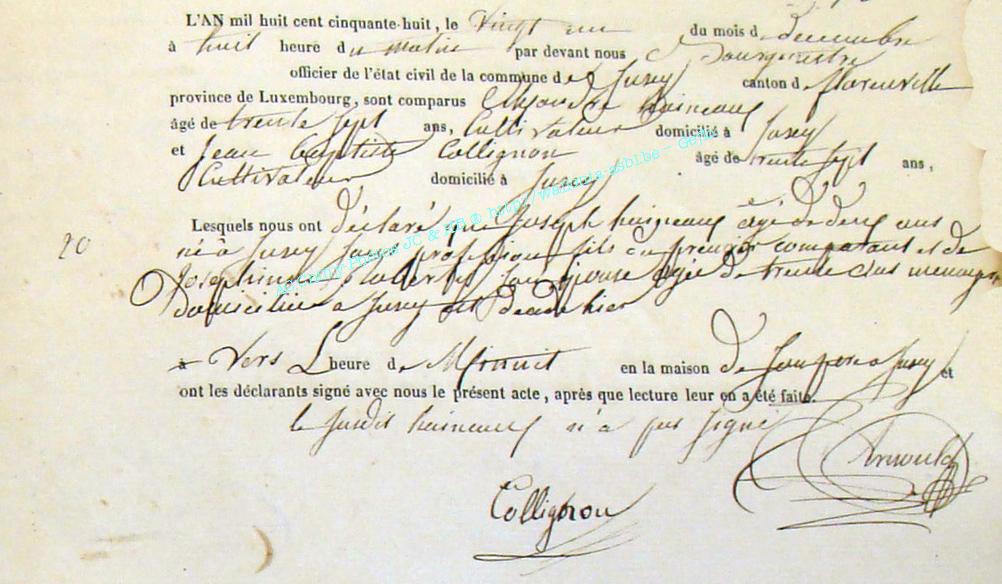 L'AN mil huit cent cinquante-huit, le Vingt un du mois d decembre
à huit heure du matin par devant nous Bourgmestre
officier de l'état civil de la commune de Izel canton d florenville
province de Luxembourg, sont comparus hainaux
âgé de trente sept ans, Cultivateur domicilié à
et Jean Baptiste Collignon âgé de trente sept ans,
Cultivateur domicilié à
Lesquels nous ont déclaré que Joseph hainaux agé de deux ans
né à sans profession fils du premier comparant et de
Josephine son épouse agée de trente ans menagere
domiciliée a est decedé hier
à Vers L heure de Minuit en la maison de son pere a et
ont les déclarants signé avec nous le présent acte, après que lecture leur en a été faite.
le susdit n'a pas signé
Arnould
Collignon
20